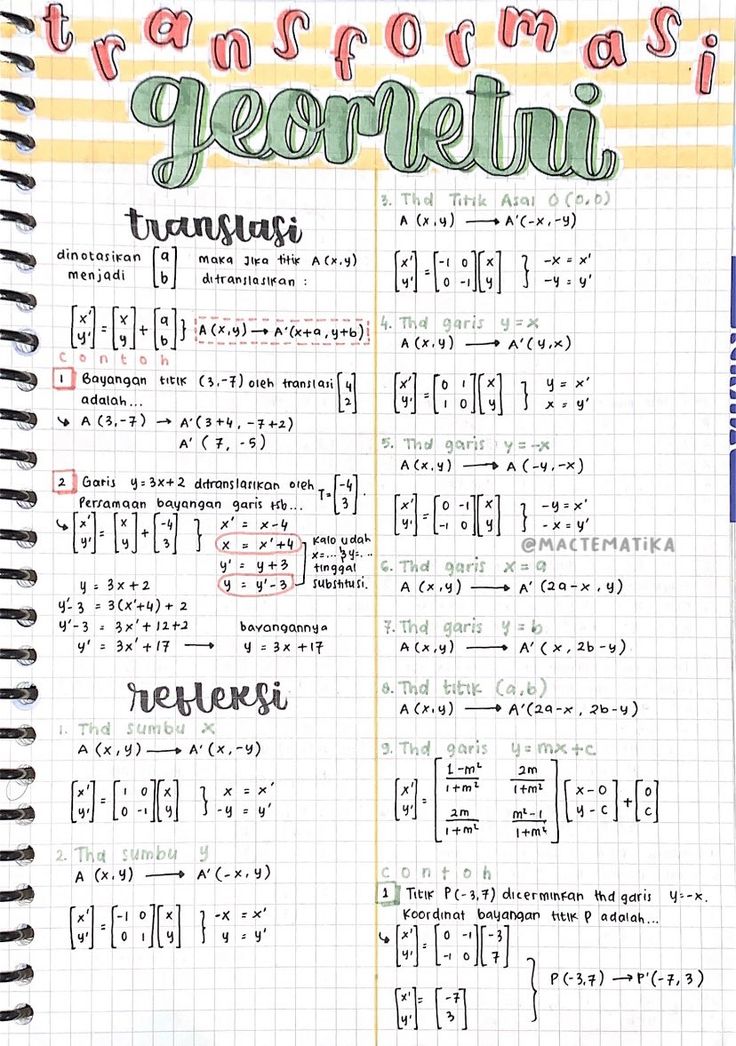 transformasi
geometri
translasi
dinotasikan [a b] maka jika titik A(x,y)
menjadi ditranslasikan :
[x' y'] = [x y] + [a b] } A(x,y) → A'(x+a, y+b)
contoh
1 Bayangan titik (3,-7) oleh translasi [4 2]
adalah...
↳ A(3,-7) → A'(3+4, -7+2)
A' (7, -5)
2 Garis y=3x+2 ditranslasikan oleh T=[-4 3].
Persamaan bayangan garis tsb...
↳ [x' y'] = [x y] + [-4 3] } x' = x-4
x = x'+4
y' = y+3
y = y'-3
kalo udah
x=... & y=...
tinggal
substitusi.
y = 3x+2
y'-3 = 3(x'+4) + 2
y'-3 = 3x'+12+2 bayangannya
y' = 3x'+17 → y = 3x+17
refleksi
1. Thd sumbu x
A(x,y) → A'(x,-y)
[x' y'] = [1 0 0 -1][x y] } x = x'
-y = y'
2. Thd sumbu y
A(x,y) → A'(-x,y)
[x' y'] = [-1 0 0 1][x y] } -x = x'
y = y'
3. Thd Titik Asal O(0,0)
A(x,y) → A'(-x,-y)
[x' y'] = [-1 0 0 -1][x y] } -x = x'
-y = y'
4. Thd garis y=x
A(x,y) → A'(y,x)
[x' y'] = [0 1 1 0][x y] } y = x'
x = y'
5. Thd garis y=-x
A(x,y) → A(-y,-x)
[x' y'] = [0 -1 -1 0][x y] } -y = x'
-x = y'
@MACTEMATiKA
6. Thd garis x=a
A(x,y) → A'(2a-x, y)
7. Thd garis y=b
A(x,y) → A'(x, 2b-y)
8. Thd titik (a,b)
A(x,y) → A'(2a-x, 2b-y)
9. Thd garis y=mx+c
[x' y'] = [1-m²/1+m² 2m/1+m² 2m/1+m² m²-1/1+m²][x-0 y-c] + [0 c]
contoh
1 Titik P(-3,7) dicerminkan thd garis y=-x.
Koordinat bayangan titik P adalah...
↳ [x' y'] = [0 -1 -1 0][-3 7]
[x' y'] = [-7 3] } P(-3,7) → P'(-7,3)